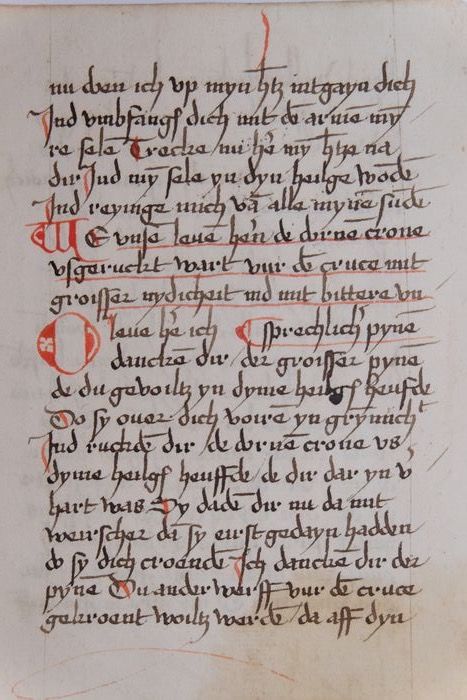 nu doen ich vp myn htz intgayn dich
Ind vmbfangs dich mit dē armē my
re selē Trecke mi hē my htze na
dir Ind my sele yn dyn heilge wodē
Ind reynige mich vā alle mynē sūdē
We vnse leuē hērn de dornē crone
vsgeruckt wart vur dē cruce mit
groisser nydicheit ind mit bittere vn
O leue hē ich sprechlich pynē
danckē dir der groisser pynē
de du gevoiltz yn dyme heilgs heufde
Do sy ouer dich voirē yn grymich
Ind ruckdē dir de dornē crone vs
dyme heilgs heuffde de dir dar yn v
hart was Sy dadē dir nu da mit
weirscher da sy eirst gedayn hadden
do sy dich croendē Ich danckē dir der
pynē Du anderwerff vur dē cruce
gekroent woiltz werdē da aff dyn